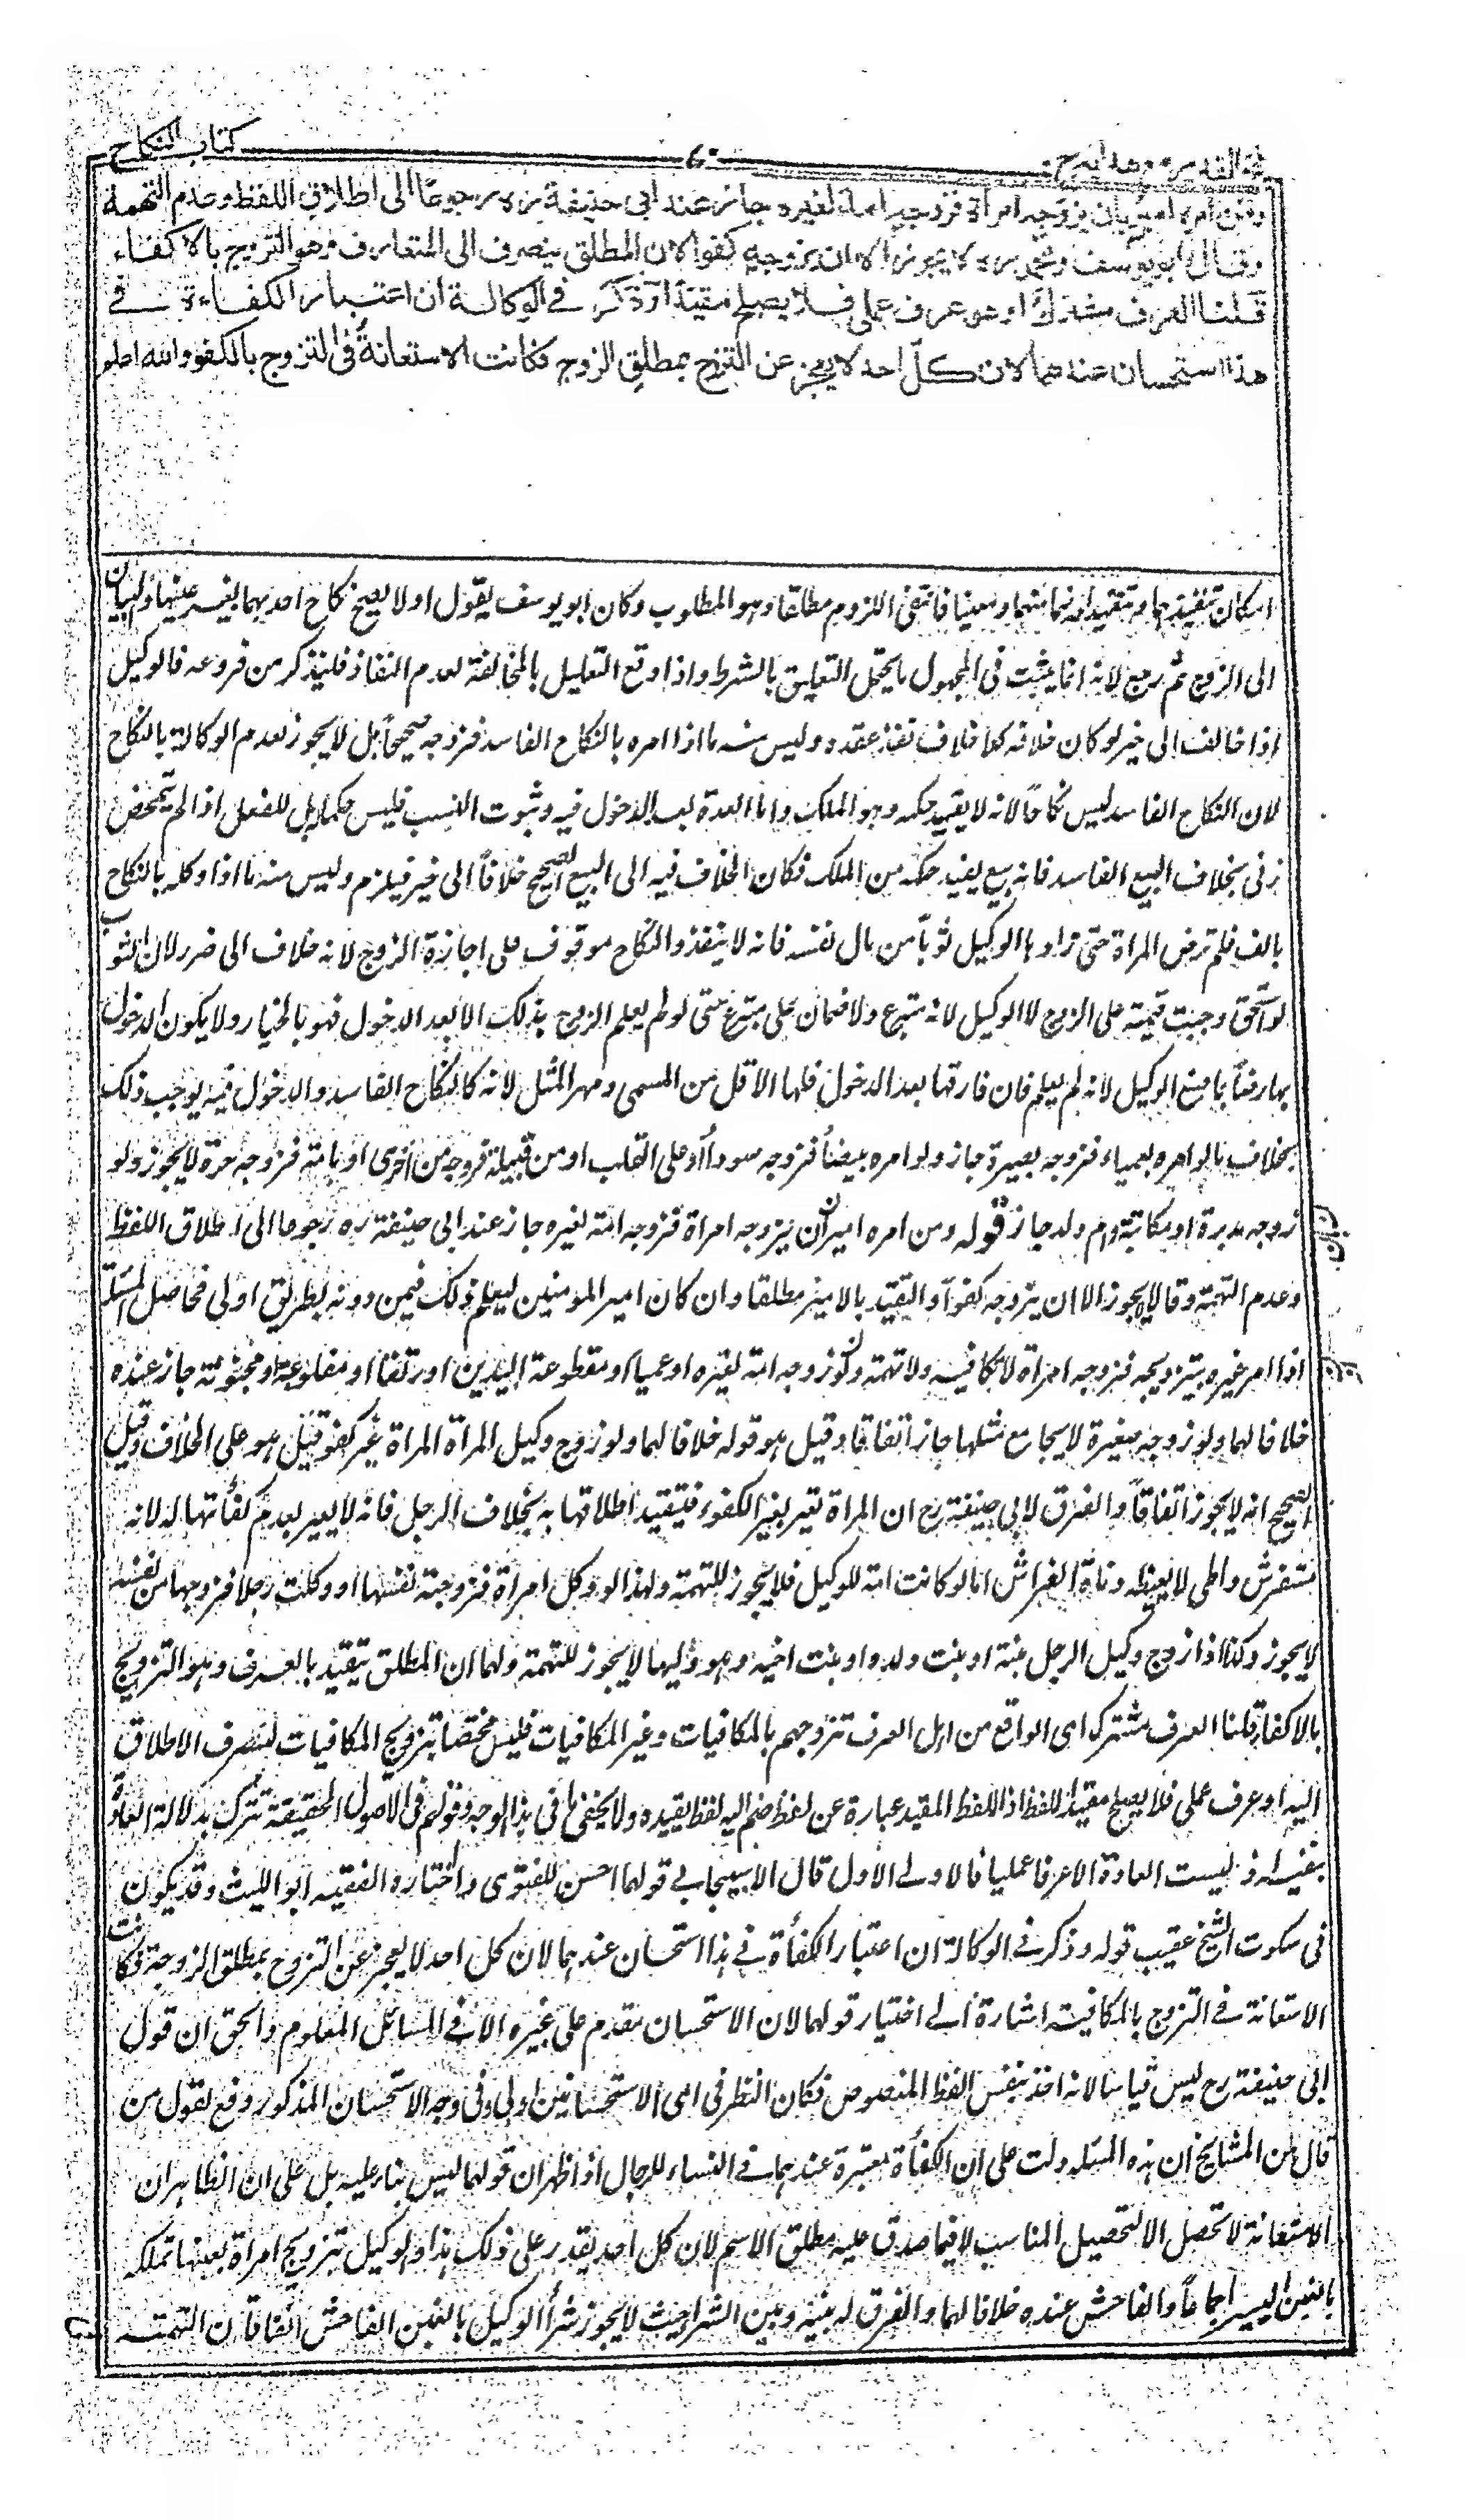 فتح القدير مع هدايه ج
كتاب النكاح
ومن امره امير بان يزوجه امرأة فزوجه امة لغيره جاز عند ابى حنيفة ره رجوعا الى اطلاق اللفظ وعدم التهمة
وقال ابو يوسف ومحمد ره لا يجوز الا ان يزوجه كفوا لان المطلق ينصرف الى المتعارف وهو التزوج بالاكفاء
قلنا العرف مشترك او هو عرف عملى فلا يصلح مقيدا وذكر فى الوكالة ان اعتبار الكفاءة فى
هذا استحسان عندهما لان كل احد لا يعجز عن التزوج بمطلق الزوج فكانت الاستعانة فى التزوج بالكفو والله اعلم
امكان تنفيذهما وتنفيذ احدهما منهما ومعينا فانتفى اللزوم مطلقا وهو المطلوب وكان ابو يوسف يقول اولا يصح نكاح احدهما بغير عينها والبيان
الى الزوج ثم رجع لانه انما يثبت فى المجهول ما يحتمل التعليق بالشرط واذا وقع التعليل بالمخالفة لعدم النفاذ فلنذكر من فروعه فالوكيل
اذا خالف الى خير لو كان خلافه كلا خلاف نفذ عقده وليس منه ما اذا امره بالنكاح الفاسد فزوجه صحيحا بل لا يجوز لعدم الوكالة بالنكاح
لان النكاح الفاسد ليس نكاحا لانه لا يفيد حكمه وهو الملك واما العدة بعد الدخول فيه وثبوت النسب فليس حكما له بل للفعل اذا لم يتمحض
زنى بخلاف البيع الفاسد فانه بيع يفيد حكمه من الملك فكان الخلاف فيه الى البيع الصحيح خلافا الى خير فيلزم وليس منه ما اذا وكله بالنكاح
بالف فلم ترض المرأة حتى زادها الوكيل ثوبا من مال نفسه فانه لا ينفذ والنكاح موقوف على اجازة الزوج لانه خلاف الى ضرر لان الثوب
لو استحق وجبت قيمته على الزوج لا الوكيل لانه متبرع ولا ضمان على متبرع حتى لو لم يعلم الزوج بذلك الا بعد الدخول فهو بالخيار ولا يكون الدخول
بها رضا بما صنع الوكيل لانه لم يعلم فان فارقها بعد الدخول فلها الاقل من المسمى ومهر المثل لانه كالنكاح الفاسد والدخول فيه يوجب ذلك
بخلاف ما لو امره بعمياء فزوجه بصيرة جاز ولو امره ببيضأ فزوجه سودأ او على القلب او من قبيلة فزوجه من اخرى او بامة فزوجه حرة لا يجوز ولو
زوجه مدبرة او مكاتبة وام ولد جاز قوله ومن امره امير ان يزوجه امرأة فزوجه امة لغيره جاز عند ابى حنيفة ره رجوعا الى اطلاق اللفظ
وعدم التهمة وقالا لا يجوز الا ان يزوجه كفوا والتقييد بالامير مطلقا وان كان امير المومنين ليعلم ذلك فيمن دونه بطريق اولى فحاصل المسئلة
اذا امر غيره بتزويجه فزوجه امرأة لا تكافيه ولا تهمة كونه زوجه امة لغيره او عميا او مقطوعة اليدين او رتقا او مفلوجة او مجنونة جاز عنده
خلافا لهما ولو زوجه صغيرة لا يجامع مثلها جاز اتفاقا وقيل هو قوله خلافا لهما ولو زوج وكيل المرأة المرأة غير كفو قيل هو على الخلاف وقيل
الصحيح انه لا يجوز اتفاقا والفرق لابى حنيفة رح ان المرأة تعير بغير الكفوء فيتقيد اطلاقها به بخلاف الرجل فانه لا يعير بعدم كفأتها له لانه
مستفرش واطى لا يغيظه دناءة الفراش اما لو كانت امة للوكيل فلا يجوز للتهمة ولهذا لو وكل امرأة فزوجته نفسها او وكلت رجلا فزوجها من نفسه
لا يجوز وكذا اذا زوج وكيل الرجل بنته او بنت ولده او بنت اخيه وهو وليها لا يجوز للتهمة ولهما ان المطلق يتقيد بالعرف وهو التزويج
بالاكفاء قلنا العرف مشترك اى الواقع من اهل العرف تزوجهم بالمكافيات وغير المكافيات فليس مختصا بتزويج المكافيات لينصرف الاطلاق
اليه او عرف عملى فلا يصلح مقيدا للفظ اذ اللفظ المقيد عبارة عن لفظ ضم اليه لفظ يقيده ولا يخفى ما فى هذا الوجه وقولهم فى الاصول الحقيقة تترك بدلالة العادة
ينفيه اذ ليست العادة الا عرفا عمليا فالاولى الاول قال الاسبيجابى قولهما احسن للفتوى واختاره الفقيه ابو الليث وقد يكون
فى سكوت الشيخ عقيب قوله وذكر فى الوكالة ان اعتبار الكفأة فى هذا استحسان عندهما لان كل احد لا يعجز عن التزوج بمطلق الزوجة فكانت
الاستعانة فى التزوج بالمكافية اشارة الى اختيار قولهما لان الاستحسان مقدم على غيره الا فى المسائل المعلوم والحق ان قول
ابى حنيفة رح ليس قياسا لانه اخذ بنفس اللفظ المنصوص فكان النظر فى اى الاستحسانين اولى وفى وجه الاستحسان المذكور دفع لقول من
قال من المشايخ ان هذه المسئلة دلت على ان الكفأة معتبرة عندهما فى النساء للرجال اذ اظهر ان قولهما ليس بناء عليه بل على ان الظاهر ان
الاستعانة لا تحصل الا لتحصيل المناسب لا فيما صدق عليه مطلق الاسم لان كل احد يقدر على ذلك هذا والوكيل بتزويج امرأة بعينها تملكه
بالغبن اليسير اجماعا والفاحش عنده خلافا لهما والفرق له بينه وبين الشرا حيث لا يجوز شرأ الوكيل بالغبن الفاحش اتفاقا ان التهمة